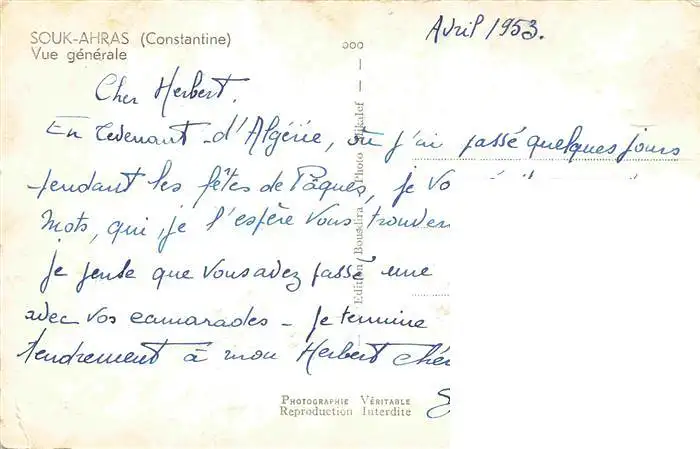 SOUK-AHRAS (Constantine)
Vue générale
Avril 1953.
Cher Herbert.
En revenant d'Algérie, où j'ai passé quelques jours
pendant les fêtes de Pâques, je
mots, qui, je l'espère vous
je pense que vous avez passé une
avec vos camarades - Je termine
tendrement à mon Herbert
Edition Bousdira - Photo
PHOTOGRAPHIE VÉRITABLE
Reproduction Interdite